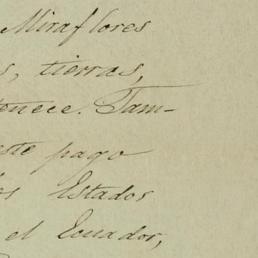 Miraflores
s, tierras,
tenece. Tam-
este pago
los Estados
el Ecuador,